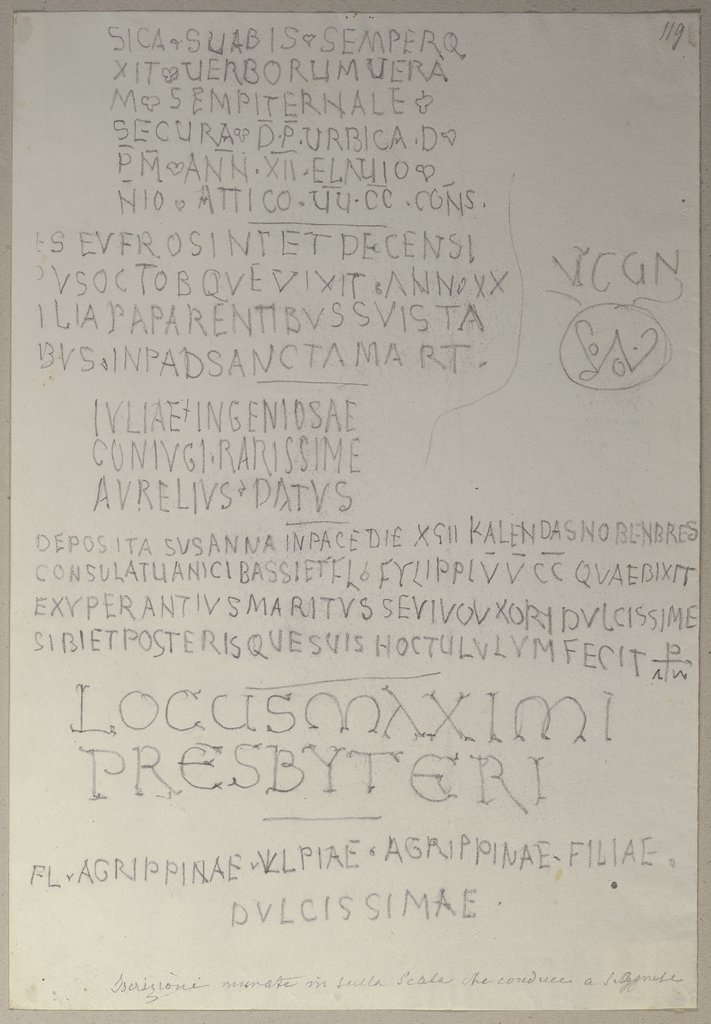 119
SICA SUABIS SEMPERQ
XIT UERBORUM UERA
M SEMPITERNALE
SECURA D̅.P̅.URBICA.D
P̅M̅ ANN.XII.EL
NIO ATTICO.U̅U̅.C̅C̅.CON̅S.
ES EVFROSINTET DECENSI
VSOCTOBQVEVIXIT ANN XX
ILIAPAPARENTIBVSSVISTA
BVS INPADSANCTAMART.
VICGN
IVLIAE INGENIOSAE
CONIVGI RARISSIME
AVRELIVS DATVS
DEPOSITA SUSANNA INPACEDIE KALENDASNOBENBRES
CONSULATUANICIBASSIETFL FYLIPPI V̅V̅ C̅C̅ QVAEBIXIT
EXVPERANTIVSMARITVSSEVIVOVXORIDVLCISSIME
SIBIETPOSTERISQUESUIS HOCTULVLVMFECIT
LOCUSMAXIMI
PRESBYTERI
FL AGRIPPINAE VLPIAE AGRIPPINAE FILIAE.
DVLCISSIMAE.
Iscrizioni murate in sulla Scala che conduce a S. Agnese